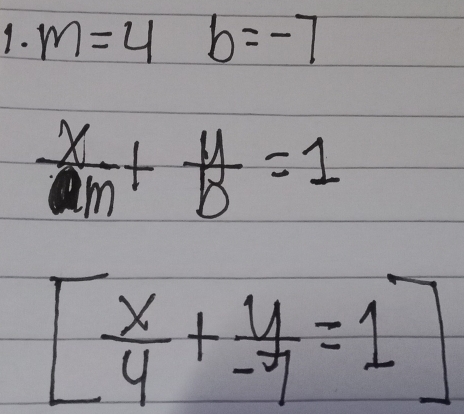 1. m = 4 b = -7
x/m + y/b = 1
[x/4 + y/-7 = 1]